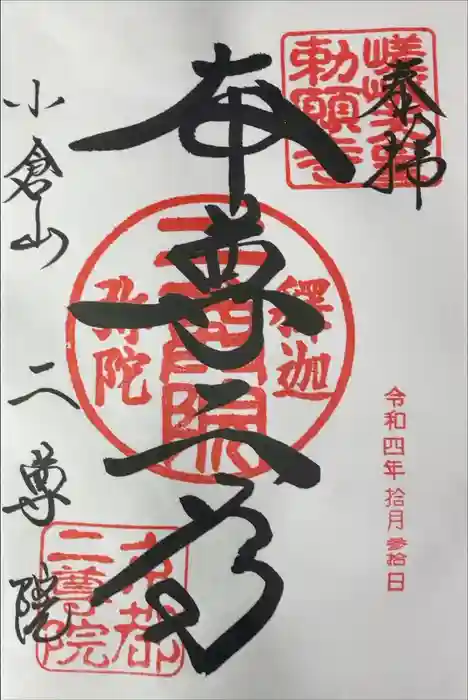 奉拝
嵯峨天皇
勅願寺
本尊二尊
釋迦
二尊院
弥陀
令和四年拾月参拾日
小倉山 二尊院
京都
二尊院